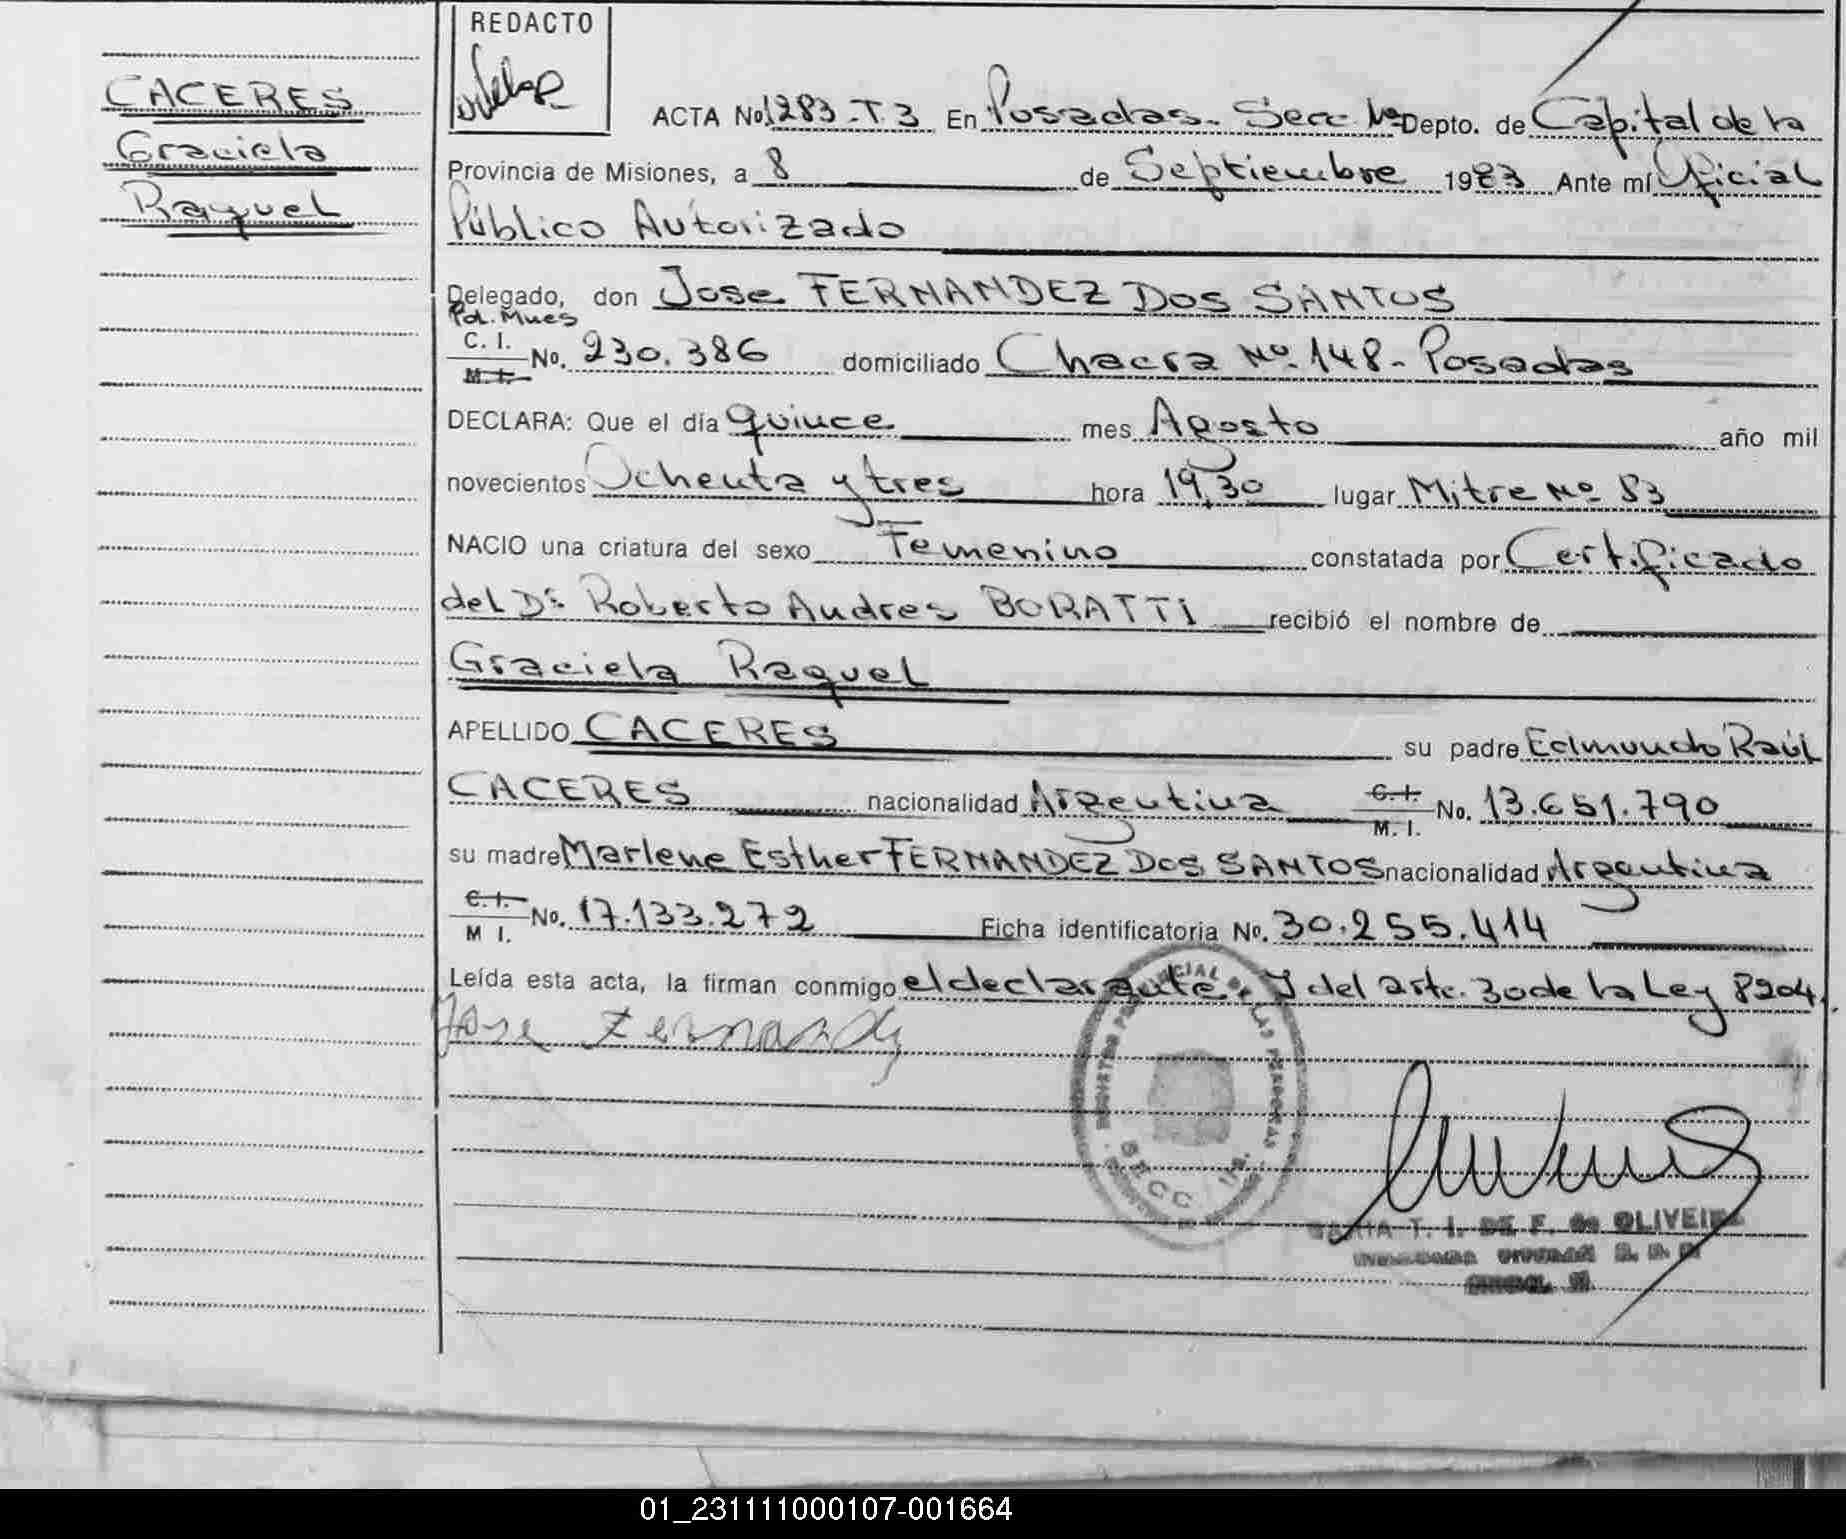 REDACTO
CACERES
Graciela
Raquel
ACTA No 1283-T.3 En Posadas. Secc 1ª Depto. de Capital de la
Provincia de Misiones, a 8 de Septiembre 1983 Ante mí Oficial
Público Autorizado
Delegado, don Jose FERNANDEZ DOS SANTOS
Pol. Mnes
C. I.
M. I. No. 230.386 domiciliado Chacra Nº 148- Posadas
DECLARA: Que el día quince mes Agosto año mil
novecientos Ochenta y tres hora 19,30 lugar Mitre Nº 83
NACIO una criatura del sexo Femenino constatada por Certificado
del Dr Roberto Andres BORATTI recibió el nombre de
Graciela Raquel
APELLIDO CACERES su padre Edmundo Raúl
CACERES nacionalidad Argentina C. I. M. I. No. 13.651.790
su madre Marlene Esther FERNANDEZ DOS SANTOS nacionalidad Argentina
C. I. M I. No. 17.133.272 Ficha identificatoria No. 30.255.414
Leída esta acta, la firman conmigo el declarante. J del artc. 30 de la Ley 8204.
Jose Fernandz
REGISTRO PROVINCIAL DE LAS PERSONAS
T. I. DE F. de OLIVEIRA
01_231111000107-001664